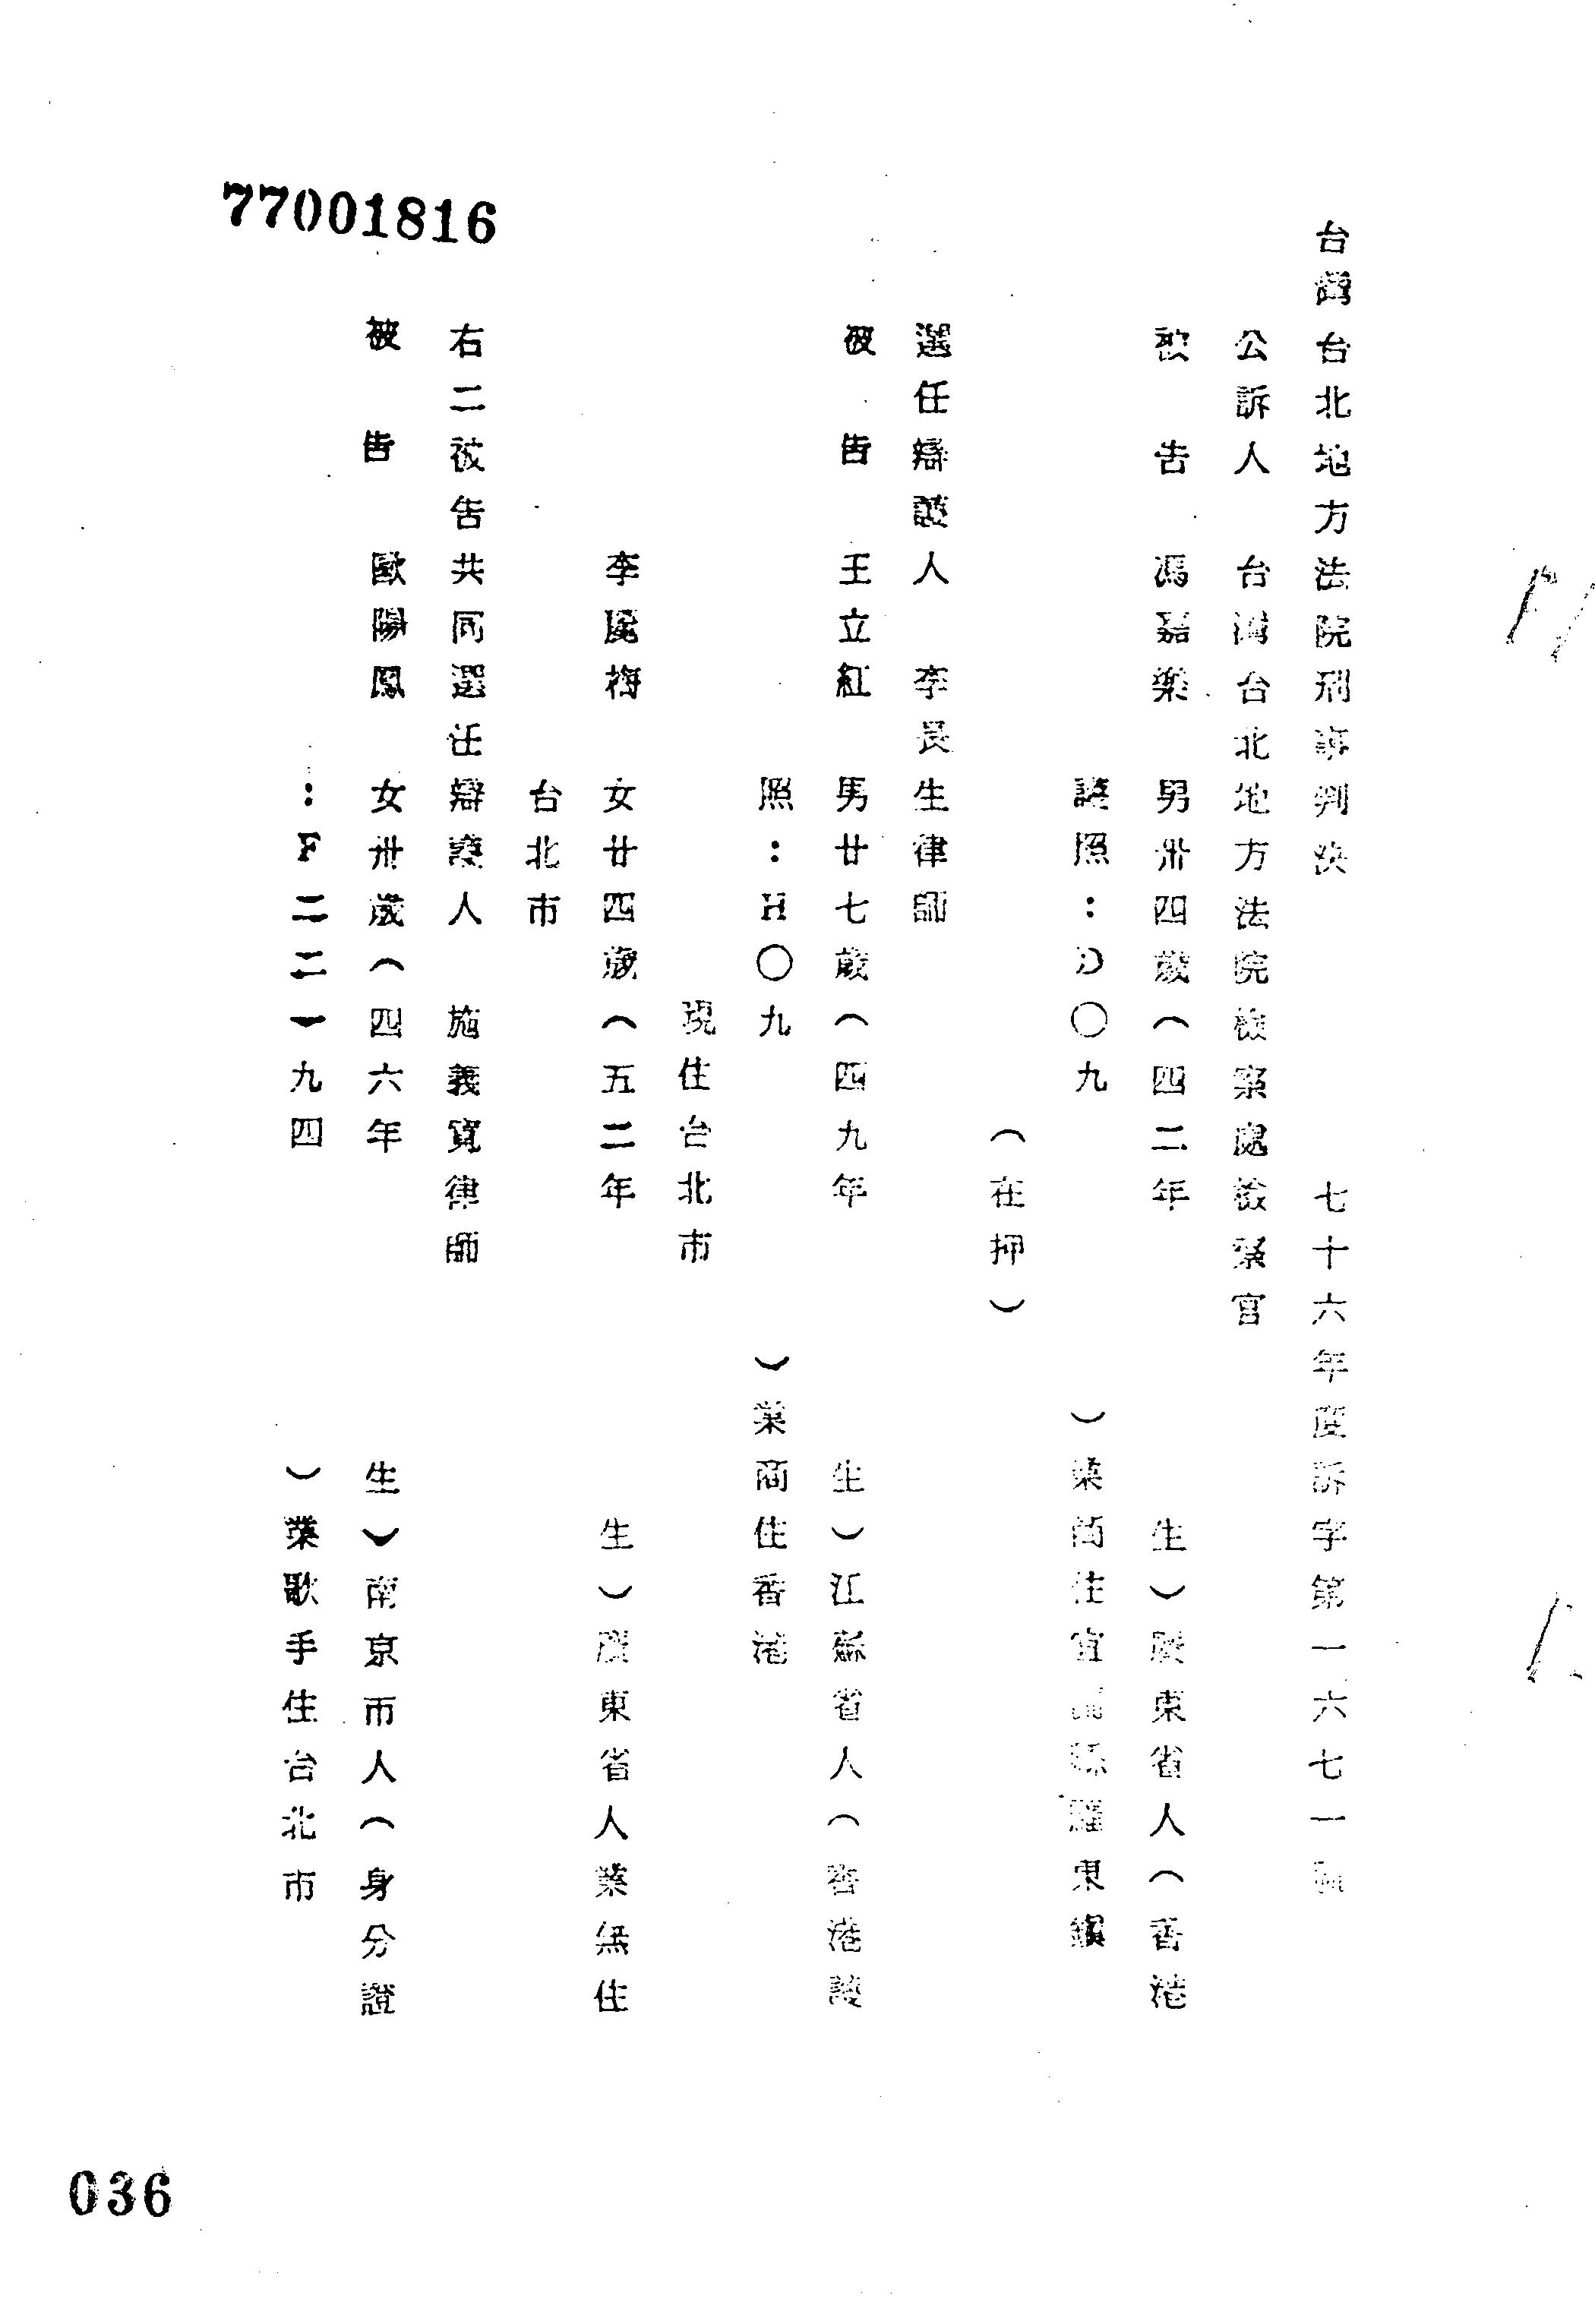 77001816
台灣台北地方法院刑事判決 七十六年度訴字第一六七一號
公訴人 台灣台北地方法院檢察處檢察官
被 告 馮嘉樂 男卅四歲（四二年 生）廣東省人（香港
護照：D〇九 ）業商住宜蘭縣羅東鎮
（在押）
選任辯護人 李長生律師
被 告 王立紅 男廿七歲（四九年 生）江蘇省人（香港護
照：H〇九 ）業商住香港
現住台北市
李鳳梅 女廿四歲（五二年 生）廣東省人業無住
台北市
右二被告共同選任辯護人 施義寬律師
被 告 歐陽鳳 女卅歲（四六年 生）南京市人（身分證
：F二二一九四 ）業歌手住台北市
036